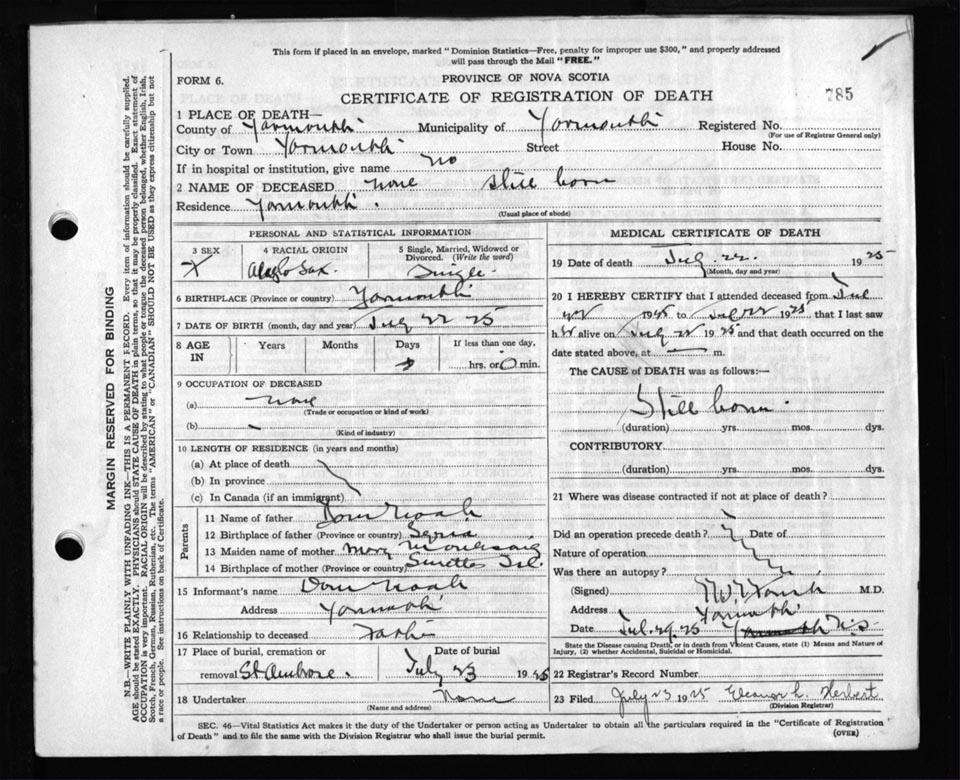 This form if placed in an envelope, marked "Dominion Statistics—Free, penalty for improper use $300," and properly addressed
will pass through the Mail "FREE."
FORM 6.
PROVINCE OF NOVA SCOTIA
CERTIFICATE OF REGISTRATION OF DEATH
785
1 PLACE OF DEATH—
County of Yarmouth Municipality of Yarmouth Registered No.
(For use of Registrar General only)
City or Town Yarmouth Street House No.
If in hospital or institution, give name no
2 NAME OF DECEASED none still born
Residence Yarmouth.
(Usual place of abode)
PERSONAL AND STATISTICAL INFORMATION
3 SEX 4 RACIAL ORIGIN 5 Single, Married, Widowed or
Divorced. (Write the word)
Anglo Sax. Single
6 BIRTHPLACE (Province or country) Yarmouth
7 DATE OF BIRTH (month, day and year) July 22 25
8 AGE IN Years Months Days If less than one day,
hrs. or 0 min.
9 OCCUPATION OF DECEASED
(a) none
(Trade or occupation or kind of work)
(b)
(Kind of industry)
10 LENGTH OF RESIDENCE (in years and months)
(a) At place of death
(b) In province
(c) In Canada (if an immigrant)
Parents
11 Name of father Noah
12 Birthplace of father (Province or country) Syria
13 Maiden name of mother Mary
14 Birthplace of mother (Province or country) Surettes Isl.
15 Informant's name Noah
Address Yarmouth
16 Relationship to deceased Father
17 Place of burial, cremation or Date of burial
removal St Ambrose. July 23 1925
18 Undertaker None
(Name and address)
MEDICAL CERTIFICATE OF DEATH
19 Date of death July. 22. 1925
(Month, day and year)
20 I HEREBY CERTIFY that I attended deceased from July
22 1925 to July 22 1925 that I last saw
h alive on July 22 1925 and that death occurred on the
date stated above, at — m.
The CAUSE of DEATH was as follows:—
Still born.
(duration) yrs. mos. dys.
CONTRIBUTORY
(duration) yrs. mos. dys.
21 Where was disease contracted if not at place of death?
Did an operation precede death? Date of
Nature of operation
Was there an autopsy?
(Signed) M.D.
Address Yarmouth
Date Jul. 29. 25 Yarmouth N.S
State the Disease causing Death, or in death from Violent Causes, state (1) Means and Nature of
Injury, (2) whether Accidental, Suicidal or Homicidal.
22 Registrar's Record Number
23 Filed July 23 1925 Eleanor L. Herbert
(Division Registrar)
SEC. 46—Vital Statistics Act makes it the duty of the Undertaker or person acting as Undertaker to obtain all the particulars required in the "Certificate of Registration
of Death" and to file the same with the Division Registrar who shall issue the burial permit.
(OVER)
MARGIN RESERVED FOR BINDING
N.B.—WRITE PLAINLY WITH UNFADING INK—THIS IS A PERMANENT RECORD. Every item of information should be carefully supplied.
AGE should be stated EXACTLY. PHYSICIANS should STATE CAUSE OF DEATH in plain terms, so that it may be properly classified. Exact statement of
OCCUPATION is very important. RACIAL ORIGIN will be described by stating to what people or tongue the deceased person belonged, whether English, Irish,
Scotch, French, German, Russian, Ruthenian, etc. The terms "AMERICAN" or "CANADIAN" SHOULD NOT BE USED as they express citizenship but not
a race or people. See instructions on back of Certificate.